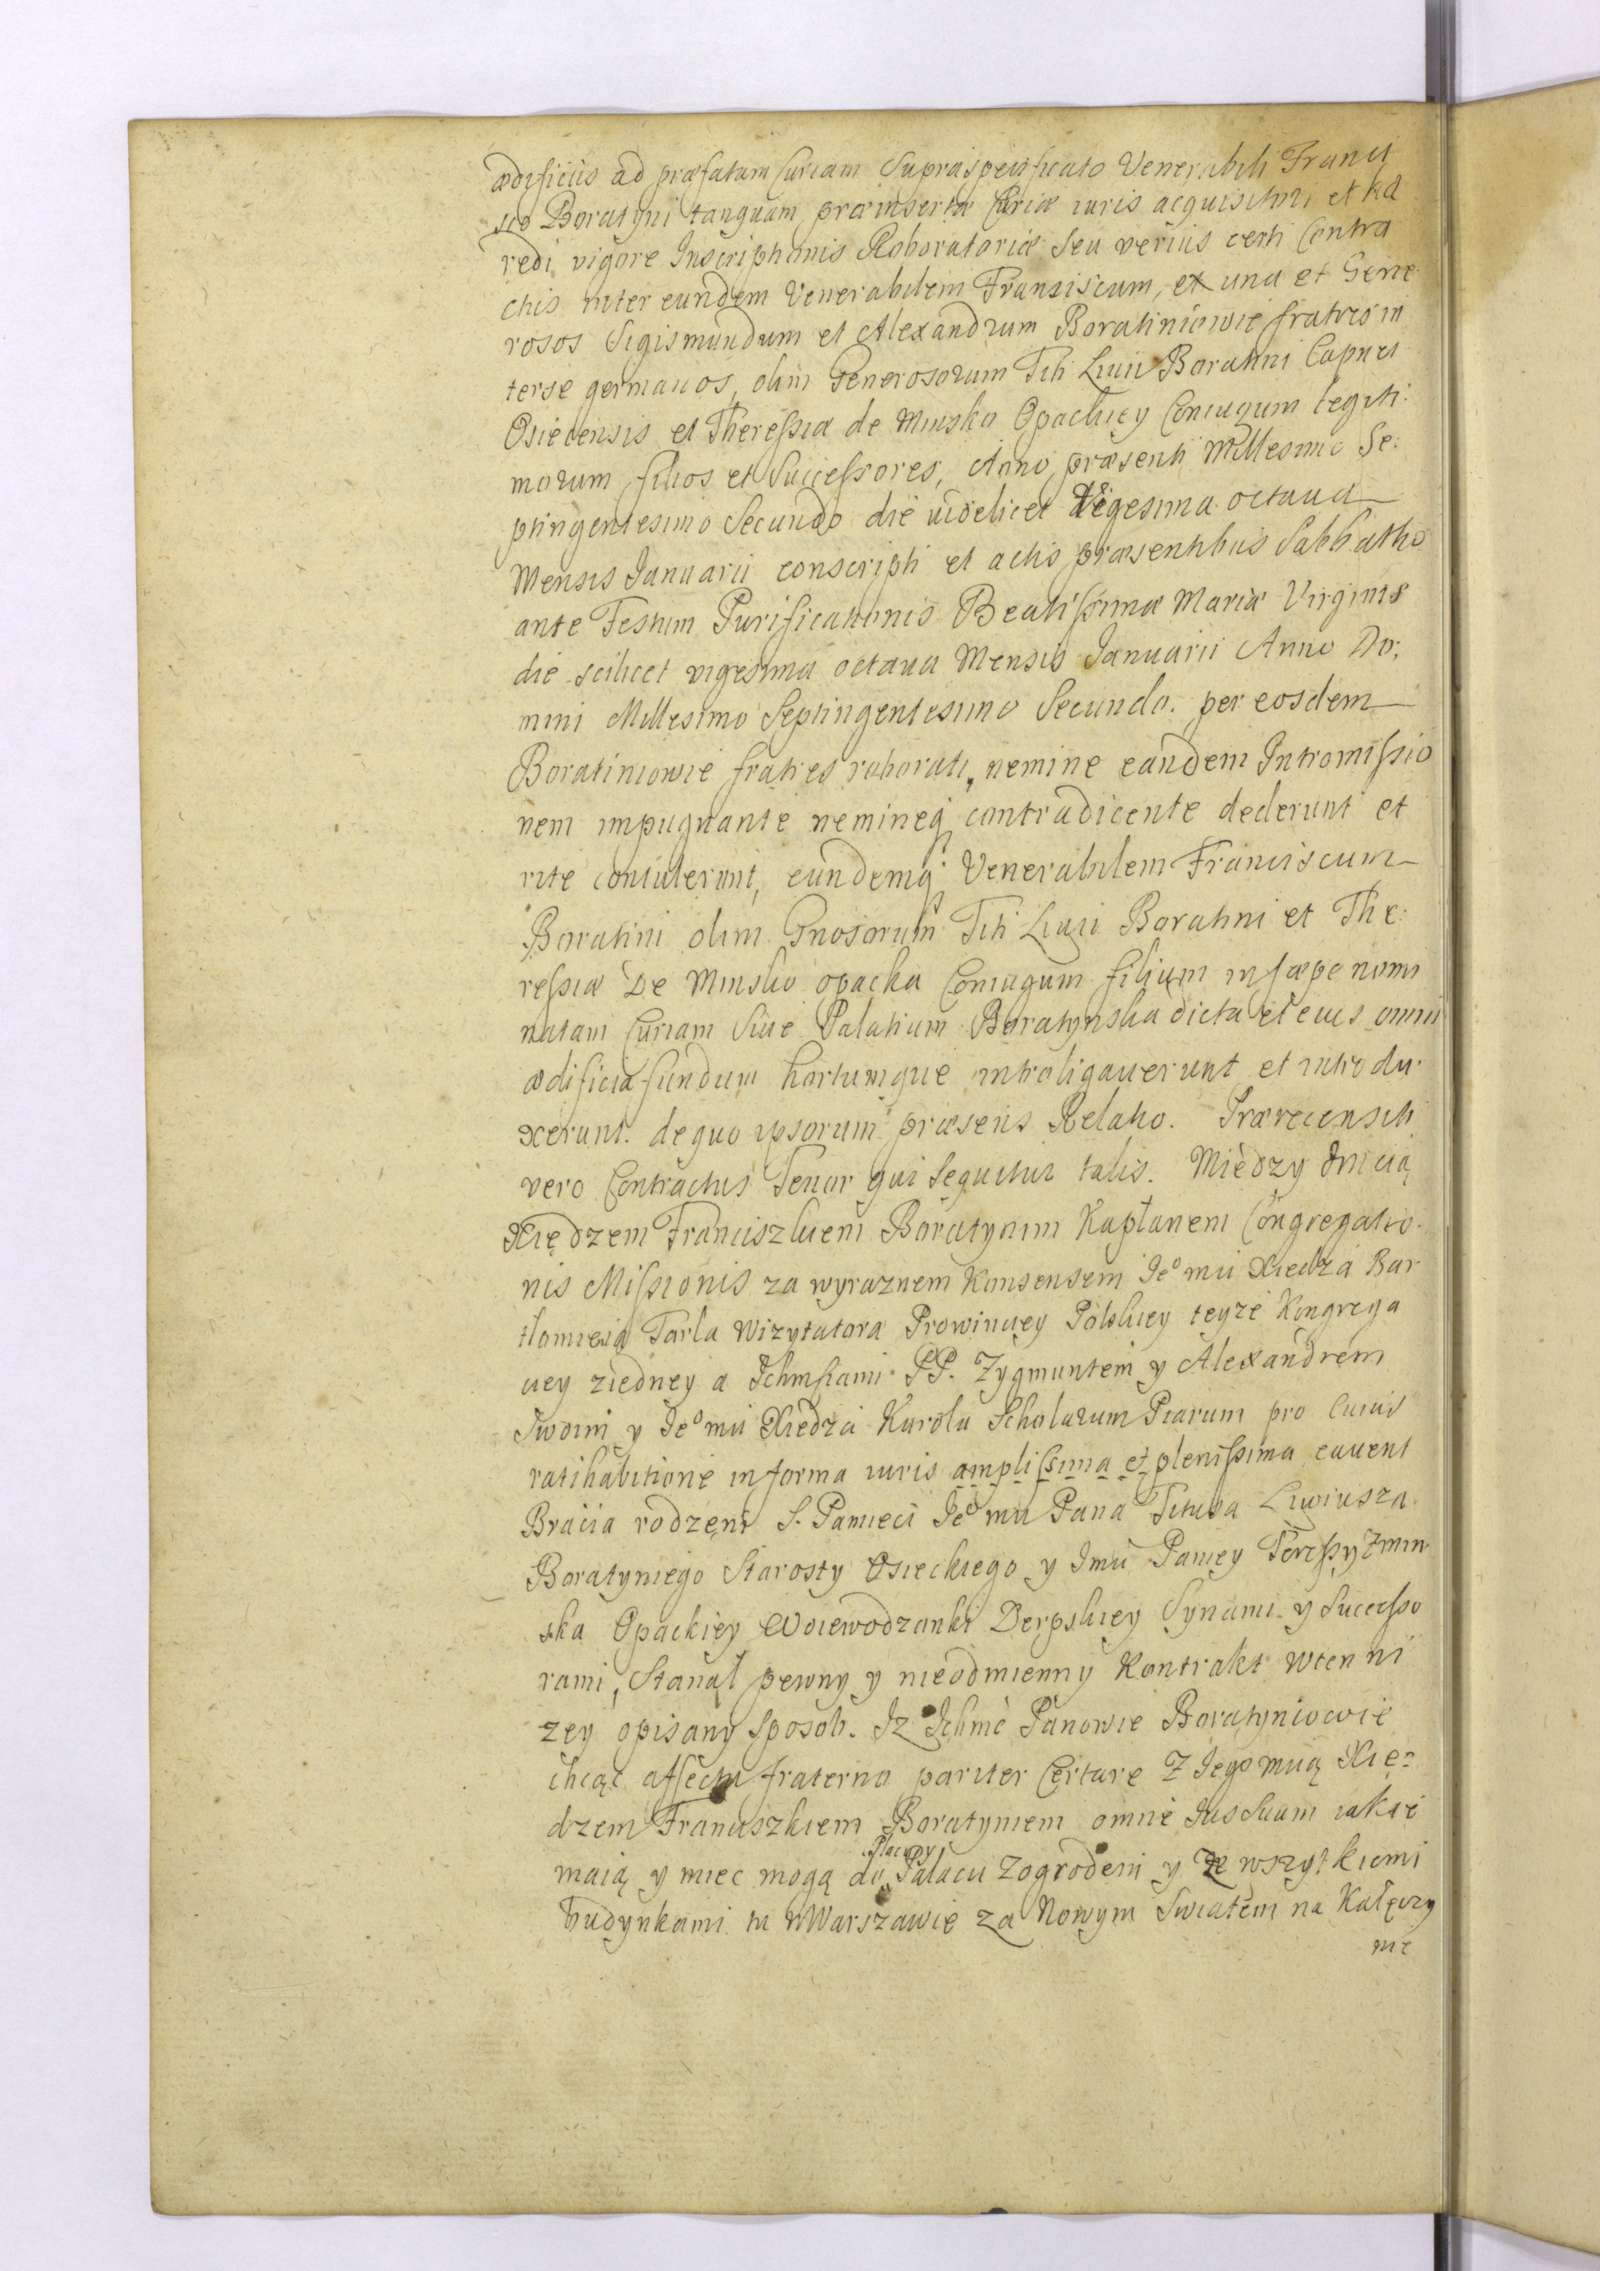 ædificiis ad præfatam Curiam Supraspecificato Venerabili Franci
sco Boratyni tanquam præinsertæ Curiæ iuris acquisitori et hæ
redi, vigore Inscriptionis Roboratoriæ Seu verius certi Contra
ctus inter eundem Venerabilem Franciscum, ex una et Gene
rosos Sigismundum et Alexandrum Boratiniowie fratres in
terse germanos, olim Generosorum Titi Liuii Boratini Capnei
Osiecensis et Theressiæ de Minsko Opackiey Coniugum legiti:
morum filios et Successores, Anno præsenti Millesimo Se:
ptingentesimo Secundo die videlicet Vigesima octaua
Mensis Januarii conscripti et actis præsentibus Sabbatho
ante Festum Purificationis Beatissimæ Mariæ Virginis
die scilicet vigesima octaua Mensis Januarii Anno Do:
mini Millesimo Septingentesimo Secundo. per eosdem
Boratiniowie fratres roborati, nemine eandem Intromissio
nem impugnante nemineq; contradicente dederunt et
rite contulerunt, eundemq; Venerabilem Franciscum
Boratini olim Gnosorum Titi Liuii Boratini et The:
ressiæ De Minsko opacka Coniugum filium in sæpe nomi
natam Curiam Siue Palatium Boratynska dicta et eius omni
ædificia fundum hortumque introligauerunt et introdu
xerunt. de quo ipsorum præsens Relatio. Prærecensiti
vero Contractus Tenor qui sequitur talis. Między Jmcią
Xiędzem Franciszkiem Boratynim Kapłanem Congregatio
nis Missionis za wyraznem Konsensem Jeo mci Xiedza Bar
tłomieia Tarła Wizytatora Prowincyey Polskiey teyze Kongrega
cyey ziedney a Ichmściami PP. Zygmuntem y Alexandrem
Swoim y Jeo mci Xiedza Karola Scholarum Piarum pro cuius
ratihabitione in forma iuris amplissima et plenissima cauent
Bracia rodzeni S. Pamieci Jeo mci Pana Titusa Liwiusza
Boratyniego Starosty Osieckiego y Jmci Paniey Teressy Zmin
ska Opackiey Woiewodzanki Derpskiey Synami y Successo
rami, Stanął pewny y nieodmienny Kontrakt wten ni
zey opisany sposob. Iz Ichmć Panowie Boratyniowie
chcąc affectu fraterno pariter Certare Z Jego mcią Xię=
dzem Franciszkiem Boratyniem omne Ius suum iakie
maią y miec mogą do Placu y Pałacu Zogrodem y Ze wszytkiemi
budynkami tu w Warszawie za Nowym Swiatem na Kałęczy
nie